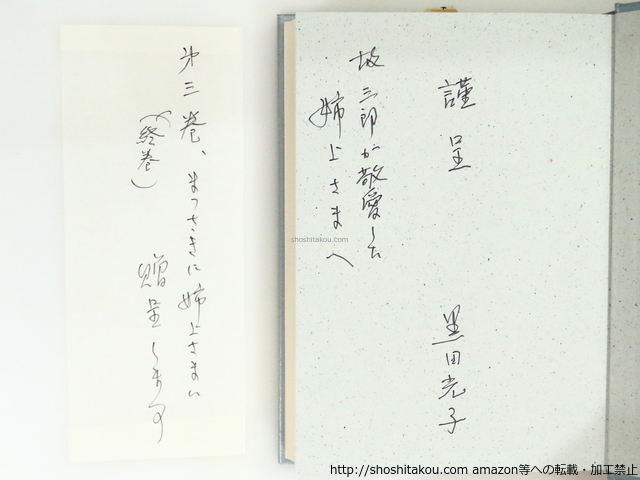 謹呈
黒田光子
故三郎が敬愛した
姉上さまへ
オ三巻、まっさきに姉上さまに
(終巻)
贈呈します
shoshitakou.com
http://shoshitakou.com amazon等への転載・加工禁止